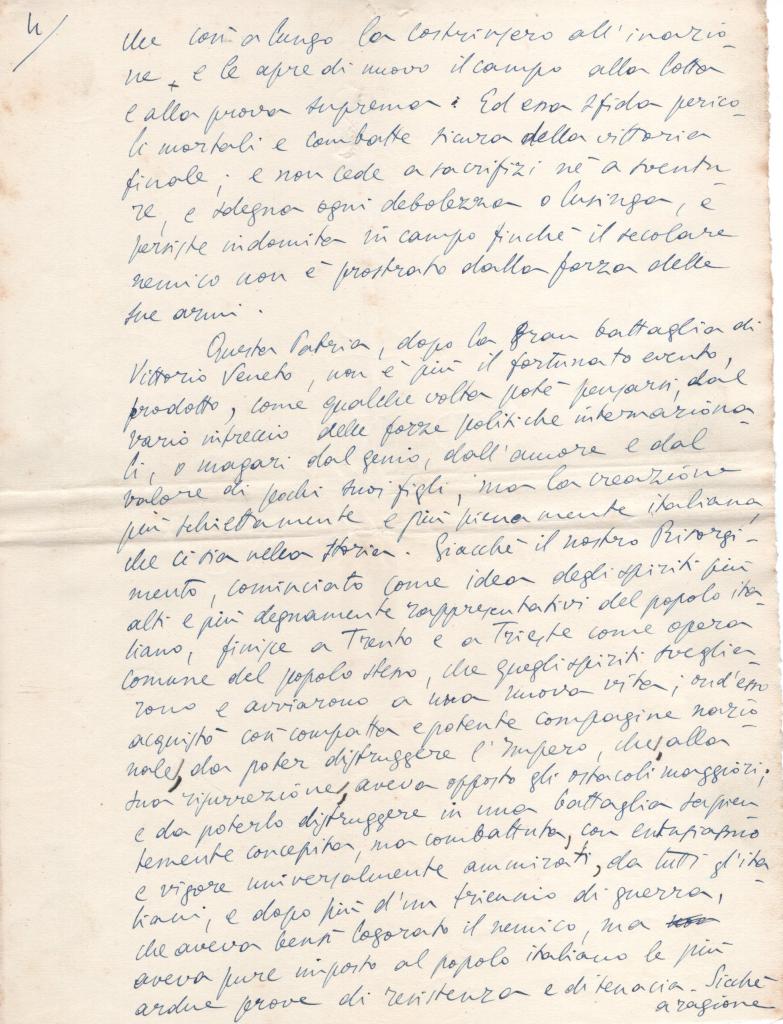 4/
che così a lungo la costrinsero all'inazio-
ne, e le apre di nuovo il campo alla lotta
e alla prova suprema. Ed essa sfida perico-
li mortali e combatte sicura della vittoria
finale; e non cede a sacrifizi nè a sventu
re, e sdegna ogni debolezza o lusinga, e
persiste indomita in campo finchè il secolare
nemico non è prostrato dalla forza delle
sue armi.
Questa Patria, dopo la gran battaglia di
Vittorio Veneto, non è più il fortunato evento,
prodotto, come qualche volta potè pensarsi, dal
vario intreccio delle forze politiche internaziona-
li, o magari dal genio, dall'amore e dal
valore di pochi suoi figli; ma la creazione
più schiettamente e più pienamente italiana,
che ci sia nella storia. Giacchè il nostro Risorgi-
mento, cominciato come idea degli spiriti più
alti e più degnamente rappresentativi del popolo ita-
liano, finisce a Trento e a Trieste come opera
comune del popolo stesso, che quegli spiriti sveglia-
rono e avviarono a una nuova vita; ond'esso
acquistò così compatta e potente compagine nazio-
nale, da poter distruggere l'Impero, che, alla
sua risurrezione, aveva opposto gli ostacoli maggiori;
e da poterlo distruggere in una battaglia sapien
temente concepita, ma combattuta, con entusiasmo
e vigore universalmente ammirati, da tutti gl'ita
liani, e dopo più d'un triennio di guerra,
che aveva bensì logorato il nemico, ma non
aveva pure imposto al popolo italiano le più
ardue prove di resistenza e di tenacia. Sicchè
a ragione